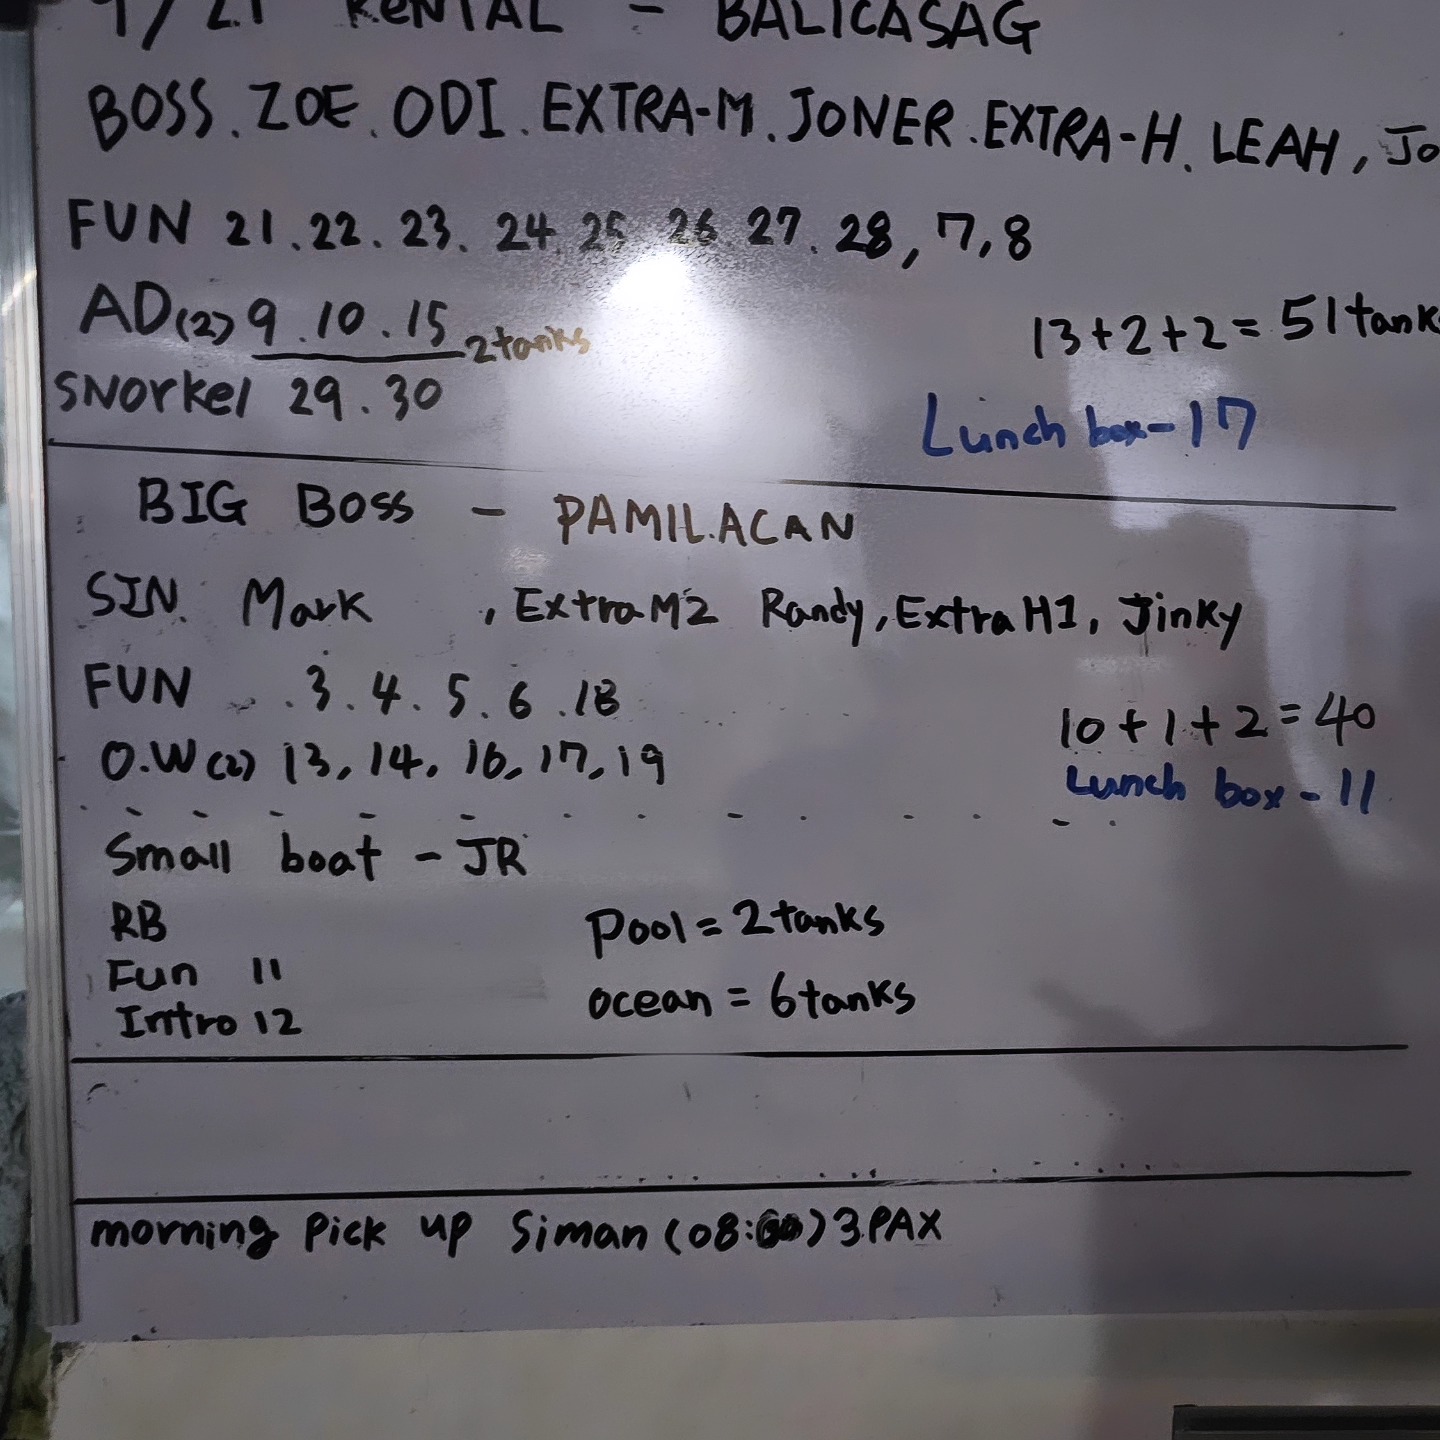 9/21 RENTAL - BALICASAG
BOSS. ZOE. ODI. EXTRA-M. JONER. EXTRA-H. LEAH, Jo
FUN 21.22.23.24.25.26.27.28,7,8
AD(2) 9.10.15 2tanks
13+2+2=51tank
SNorkel 29.30
Lunch box-17
BIG BOSS - PAMILACAN
SIN. Mark , Extra M2 Randy, Extra H1, Jinky
FUN .3.4.5.6.18
10+1+2=40
O.W(2) 13,14,16,17,19
Lunch box-11
Small boat - JR
RB
pool=2tanks
Fun 11
ocean=6tanks
Intro 12
morning Pick up Siman (08:00) 3 PAX